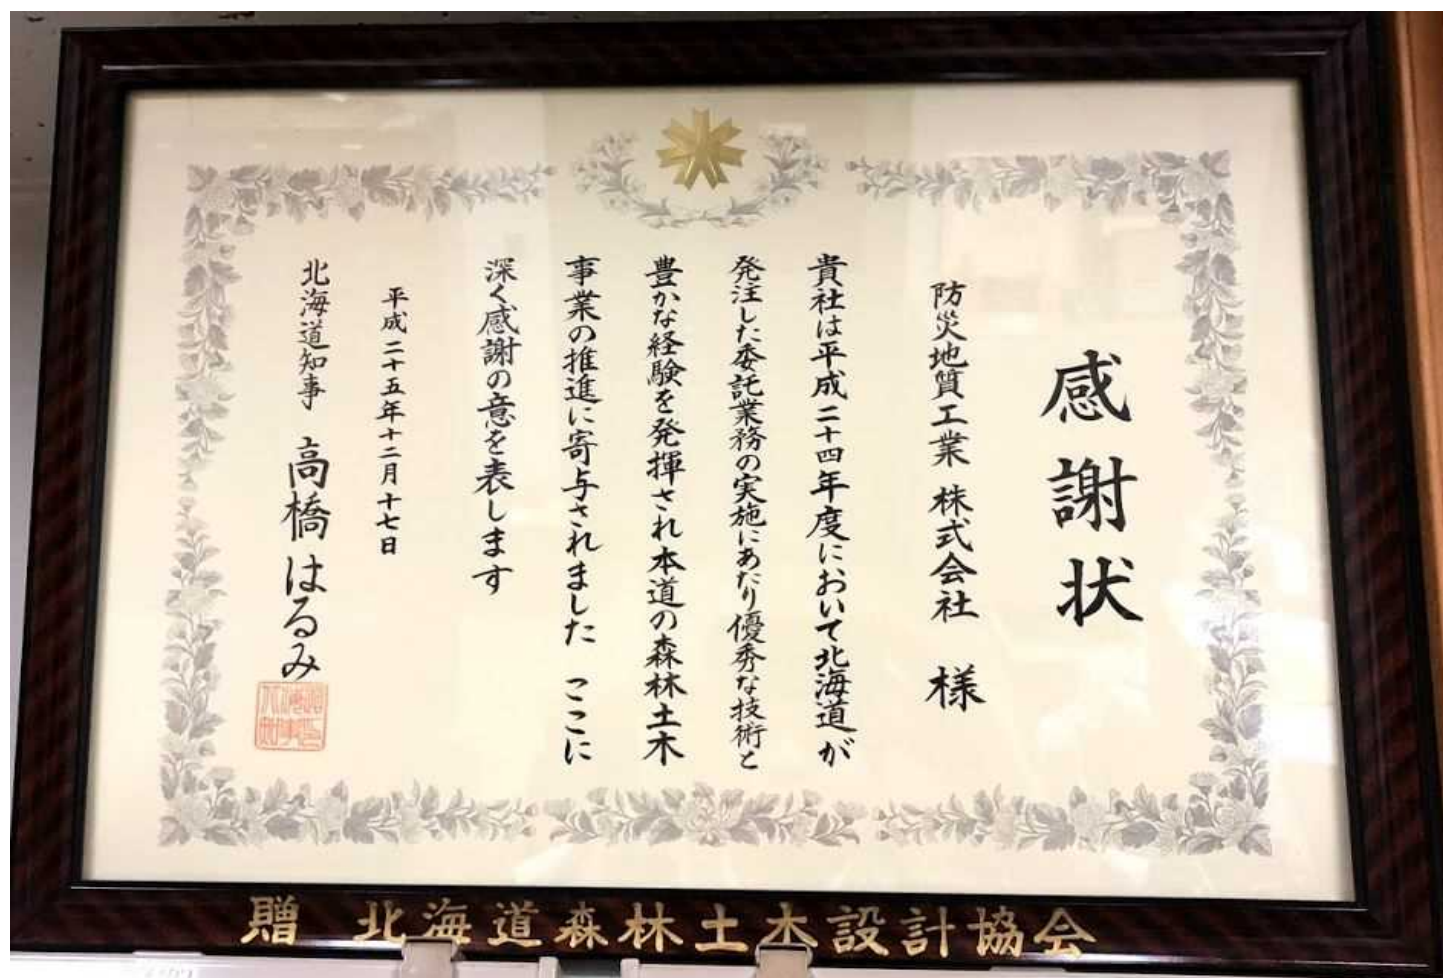 感謝状
防災地質工業 株式会社 様
貴社は平成二十四年度において北海道が
発注した委託業務の実施にあたり優秀な技術と
豊かな経験を発揮され本道の森林土木
事業の推進に寄与されました ここに
深く感謝の意を表します
平成二十五年十二月十七日
北海道知事 高橋はるみ
贈 北海道森林土木設計協会